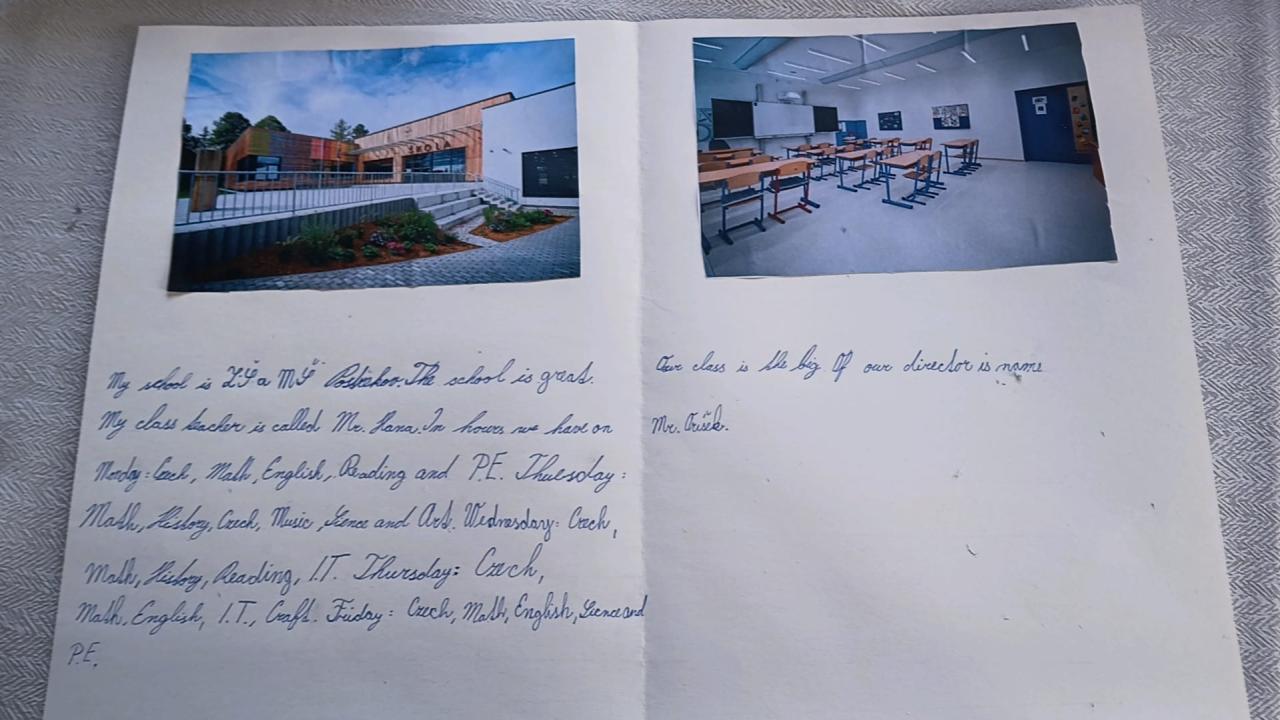 ŠKOLA
My school is ZŠ a MŠ Postřekov. The school is great.
My class teacher is called Mr. Hana. In hours we have on
Monday: Czech, Math, English, Reading and P.E. Thuesday:
Math, History, Czech, Music, Sience and Art. Wednesday: Czech,
Math, History, Reading, I.T. Thursday: Czech,
Math, English, I.T., Craft. Friday: Czech, Math, English, Sience and
P.E.
Our class is the big Of our director is name
Mr.